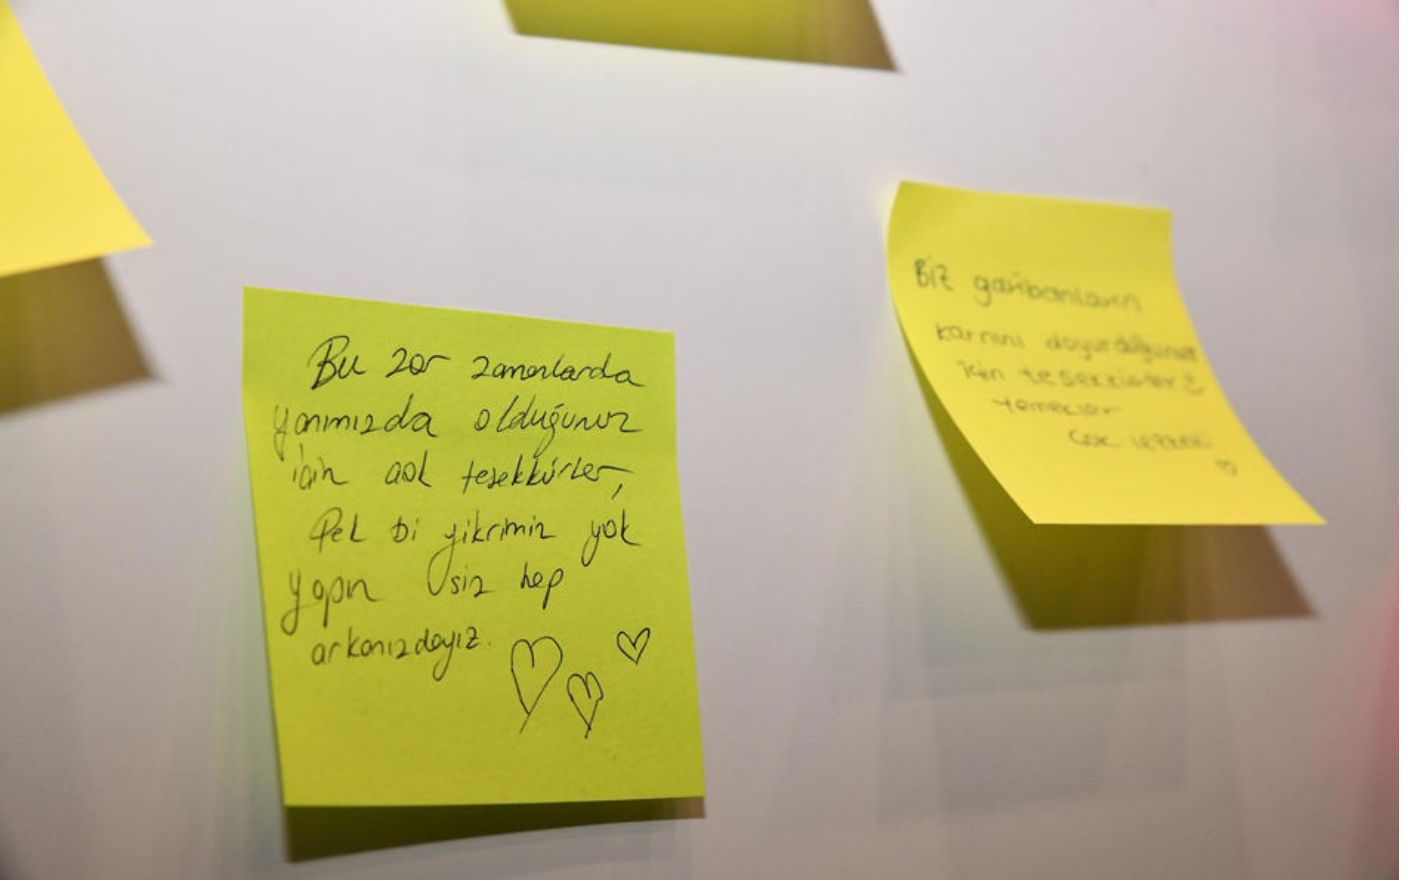 Bu zor zamanlarda
yanımızda olduğunuz
için çok teşekkürler,
Pek bi fikrimiz yok
yapın siz hep
arkanızdayız.
Biz garibanların
karnını doyurduğunuz
için teşekkürler
Yemekler
Çok lezzetli